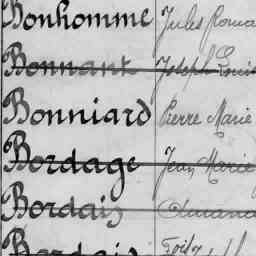 Bonhomme Jules Roma
Bonnant Joseph Louis
Bonniard Pierre Marie
Bordage Jean Marie
Bordais
Bordais